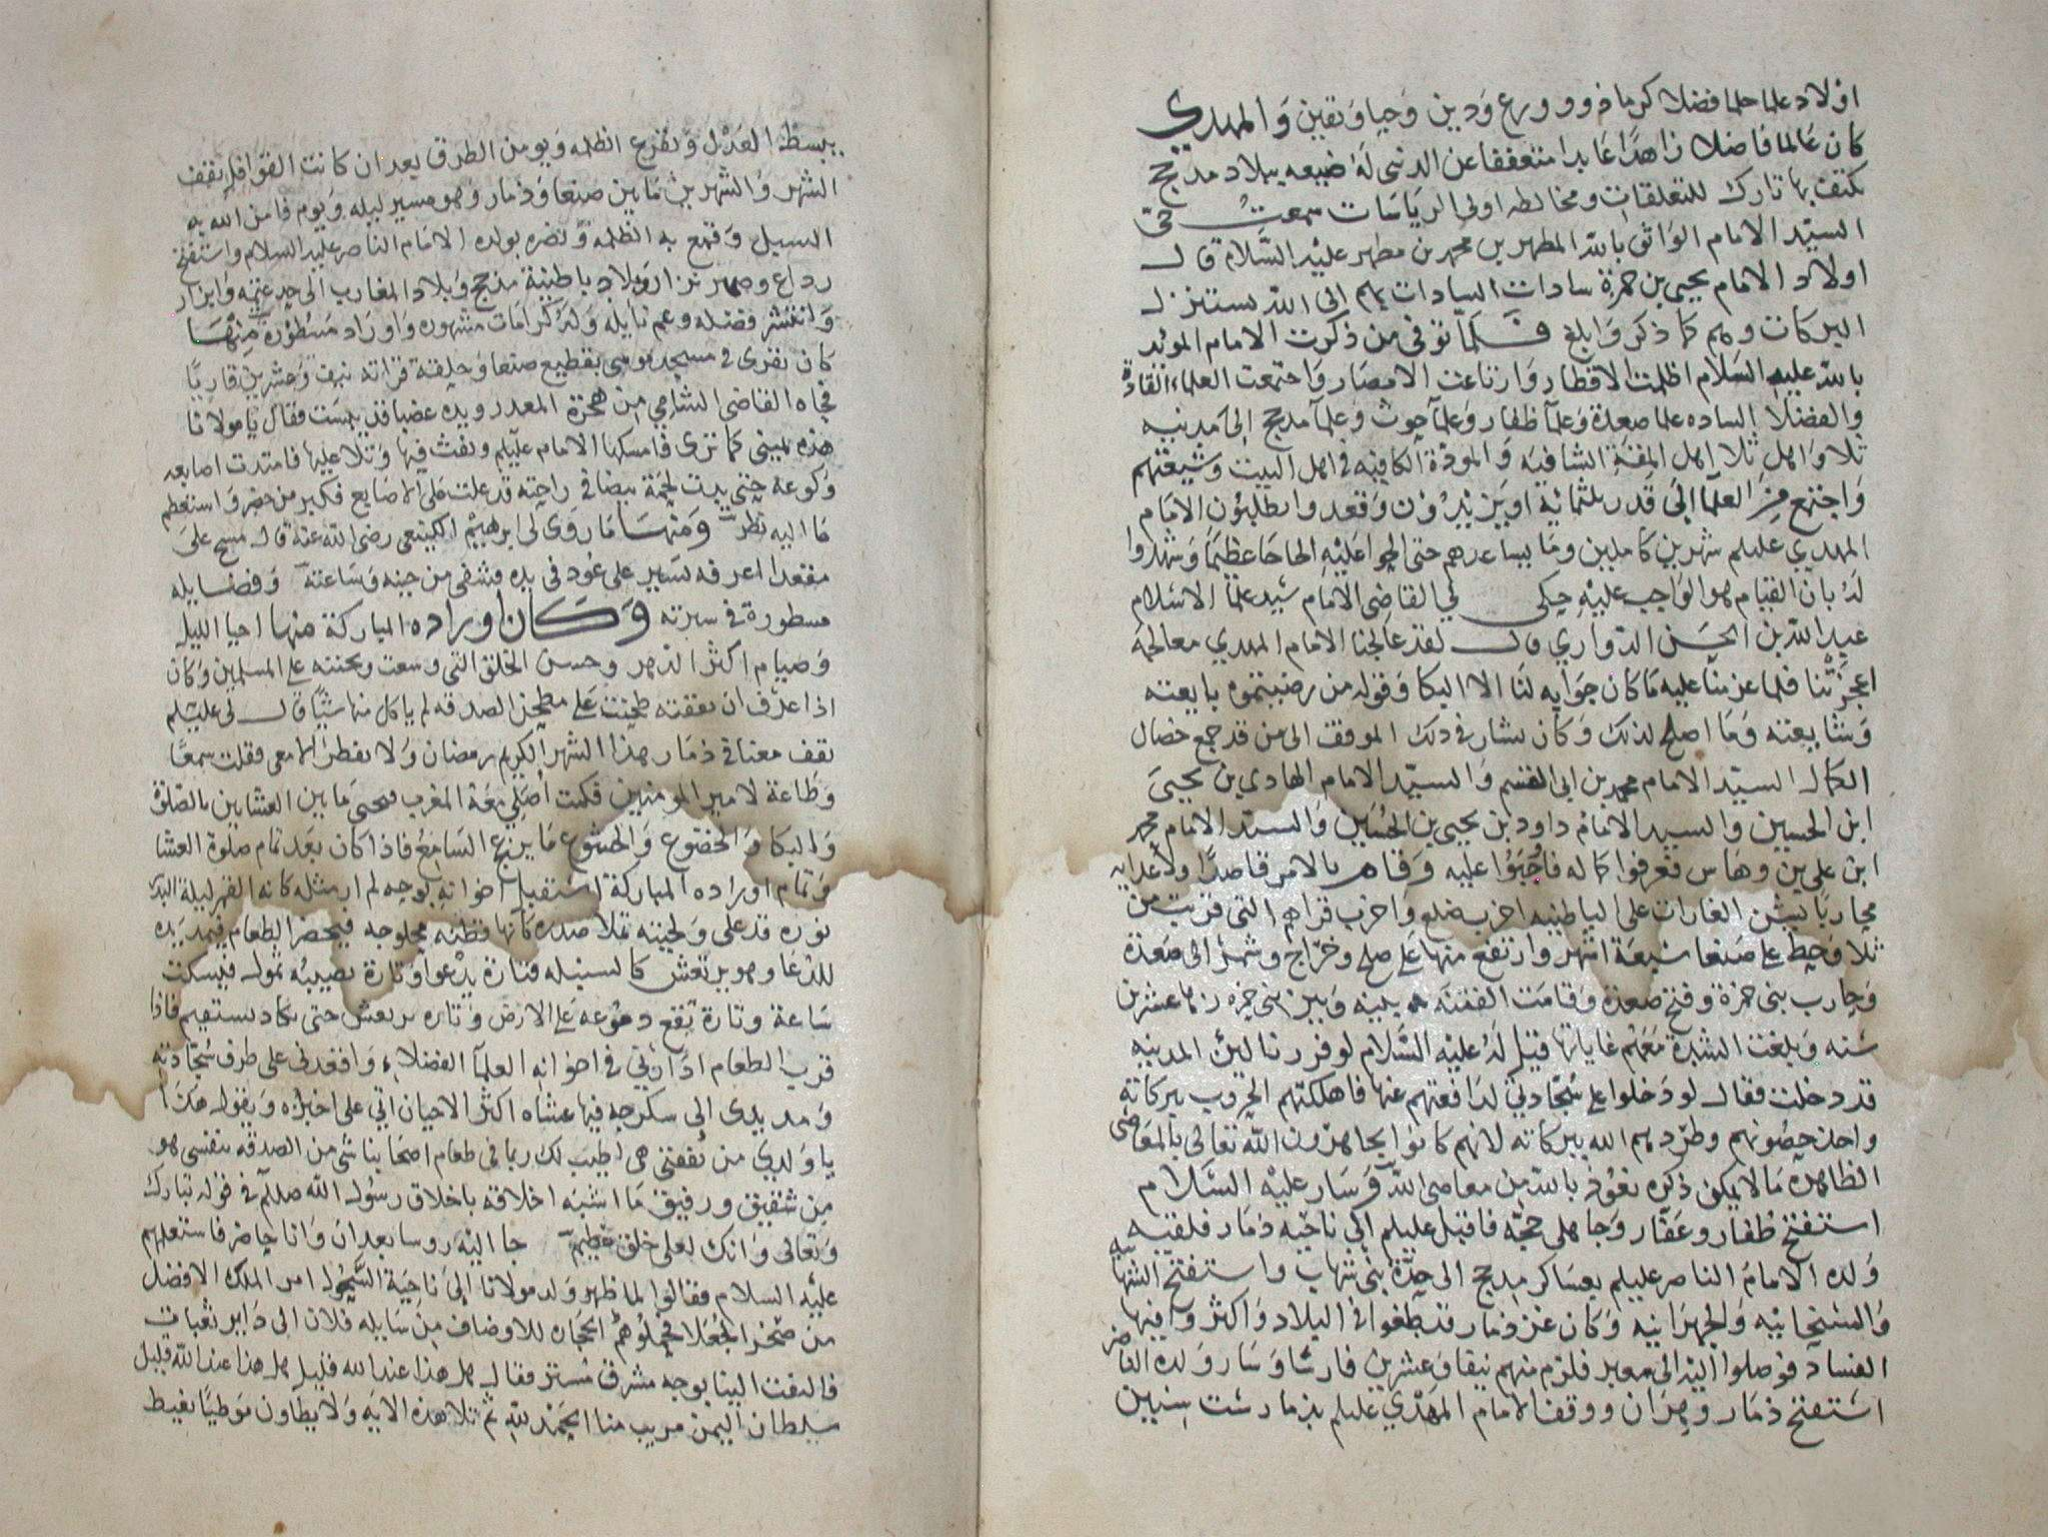 اولاد علما حلما فضلا كرما ذوو ورع ودين وحيا ويقين والمهدي
كان عالما فاضلا زاهدا عابدا متعففا عن الدنيى له ضيعه ببلاد مذحج
يكتف بها تارك للتعلقات ومخالطه اولى الرياسات سمعت حي
السيد الامام الواثق بالله المطهر بن محمد بن مطهر عليه السلام قال
اولاد الامام يحيى بن حمزة سادات السادات بهم الى الله يستنزل
البركات وهم كما ذكر وابلغ فلما توفى من ذكرت الامام الموئد
بالله عليه السلام اظلمت لاقطار وارتاعت الامصار واجتمعت العلماء القادة
والفضلا الساده علما صعدة وعلما ظفار وعلما حوث وعلما مذحج الى مدنيه
ثلا واهل ثلا اهل المقة الشافيه والمودة الكافيه في اهل البيت وشيعتهم
واجتمع من العلما الى قدر ثلثمائة او يزيدون وقعدوا يطلبون الامام
المهدي عليلم شهرين كاملين وما يساعدهم حتى الحوا عليه الحاحا عظيما وشهدوا
له بان القيام هو الواجب عليه حكى لي القاضي الامام سيد علما الاسلام
عبد الله بن الحسن الدواري قال لقد عالجنا الامام المهدي معالجة
اعجزتنا فلما عزمنا عليه ما كان جوابه لنا الا البكا وقوله من رضيتموه بايعته
وشايعته وما اصلح لذلك وكان يشار في ذلك الموقف الى من قد جمع خصال
الكمال السيد الامام محمد بن ابي القسم والسيد الامام الهادي بن يحيى
ابن الحسين والسيد الامام داود بن يحيى بن الحسين والسيد الامام محمد
ابن علي بن وهاس فعرفوا كماله فاجبوا عليه وقام بالامر قاصدا ولاعدايه
محاربا يشن الغارات على الباطنيه اخرب ضلع واخرب قراهم التي قربت من
ثلا وحط على صنعا سبعة اشهر وارتفع منها على صلح وخراج وشمر الى صعدة
وحارب بني حمزة وفتح صعدة وقامت الفتنة بينه وبين بني حمزه زها عشرين
سنه وبلغت الشدة معهم غاياتها قيل له عليه السلام لو فررنا ليئ المدينه
قد دخلت فقال لو دخلوا على سجادتي لدافعتهم عنها فاهلكتهم الحروب ببركاته
واخذ حصونهم وطردهم الله ببركاته لانهم كانوا يجاهرون الله تعالى بالمعاصي
الظاهرة ما لا يمكن ذكره نعوذ بالله من معاصي الله وسار عليه السلام
استفتح ظفار وعفار وجاهلى حجه فاقبل عليلم الى ناحيه ذمار فلقيه
ولده الامام الناصر عليلم بعساكر مذحج الى حدة بني شهاب واستفتح الشهابيه
والسنحانيه والجهرانيه وكان غز ذمار قد طغوا في البلاد واكثروا فيها
الفساد فوصلوا اليه الى معبر فلزم منهم نيفا وعشرين فارسا وسار ولده الناصر
استفتح ذمار وهران ووقف الامام المهدي عليلم بذمار ست سنين
يبسط العدل ويقزع الظلمه ويومن الطرق بعد ان كانت القوافل تقف
الشهر والشهرين ما بين صنعا وذمار وهو مسير ليله ويوم فامن الله به
السبيل وقمع به الظلمه ونصره بولده الامام الناصر عليه السلام واستفتح
رداع وصهر نزار وبلاد باطنية مذحج وبلاد المغارب الى حد عتمه وانزار
وانتشر فضله وعم نايله وله كرامات مشهوره واوراد مسطورة منها
كان يقرى في مسجد موسى بقطيع صنعا وحليقة قراته نيف وعشرين قاريا
فجاه القاضي الشامي من هجرة المعدر ويده عضبا قد يبست فقال يا مولانا
هذه يميني كما ترى فامسكها الامام عليلم ونفث فيها وتلا عليها فامتدت اصابعه
وكوعه حتى بدت لحمة بيضا في راحته قد علت على الاصابع فكبر من حضر واستعظم
ما اليه نظر ومنها ما روى لي ابرهيم الكينعي رضي الله عنه قال مسح على
مقعد اعرفه يسير على عود في يده فشفى من حينه وساعته وفضايله
مسطورة في سيرته وكان اوراده المباركة منها احيا الليل
وصيام اكثر الدهر وحسن الخلق التي وسعت ويحننه على المسلمين وكان
اذا عرف ان نفقته طحنت على مطحن الصدقه لم ياكل منها شيا قال لي عليلم
تقف معنا في ذمار هذا الشهر الكريم رمضان ولا تفطر الا معي فقلت سمعا
وطاعة لامير المومنين فكنت اصلي معه المغرب فيحيى ما بين العشاين بالصلوة
والبكا والخضوع والخشوع ما يزيع السامع فاذا كان بعد تمام صلوة العشا
وتمام اوراده المباركة استقبل اخوانه بوجه لم ار مثله كانه القمر ليلة البدر
نوره قد علي ولحيته تملا صدره كانها قطنه محلوجه فيحضر الطعام فيمد يده
للدعا وهو يرتعش كالسنبله فتارة يدعوا وتارة يصيبه ثمول فيسكت
ساعة وتارة تقع دموعه على الارض وتاره يرتعش حتى يكاد يستقيم فاذا
قرب الطعام اداني في اخوانه العلما الفضلاء واقعدني على طرف سجادته
ومد يدي الى سكرجه فيها عشاه اكثر الاحيان اتي على اخبازه ويقول هكذا
يا ولدي من نفقتي هي اطيب لك ربما في طعام اصحابنا شي من الصدقه بنفسي هو
من شفيق ورفيق ما اشبه اخلاقه باخلاق رسول الله صللم في قوله تبارك
وتعالى وانك لعلى خلق عظيم جا اليه روسا بعدان وانا حاضر فاستعلمهم
عليه السلام فقالوا لما ظهر ولد مولانا الى ناحية الشحول امر الملك الافضل
من صخر الجعلا فحملوهم الحجاره للاوضاف من سايله فلان الى داير تعبات
فالتفت الينا بوجه مشرق مستر فقال هل هذا عند الله قليل هل هذا عند الله قليل
سلطان اليمن مريب منا الحمد لله ثم تلا هذه الايه ولا يطاون موطيا يغيظ